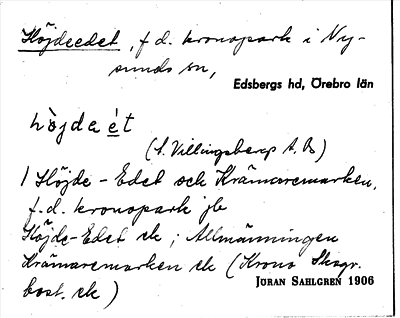 Höjdeedet, f.d. kronopark i Ny-
sunds sn,
Edsbergs hd, Örebro län
hö̀jda é̱t
(S. Villingsberg A. Bo)
1 Höjde-Edet och Krämaremarken,
f.d. kronopark jb
Höjde-Edet ek ; Allmänningen
Krämaremarken ek (Krono Skogr.
bost. ek)
JÖRAN SAHLGREN 1906